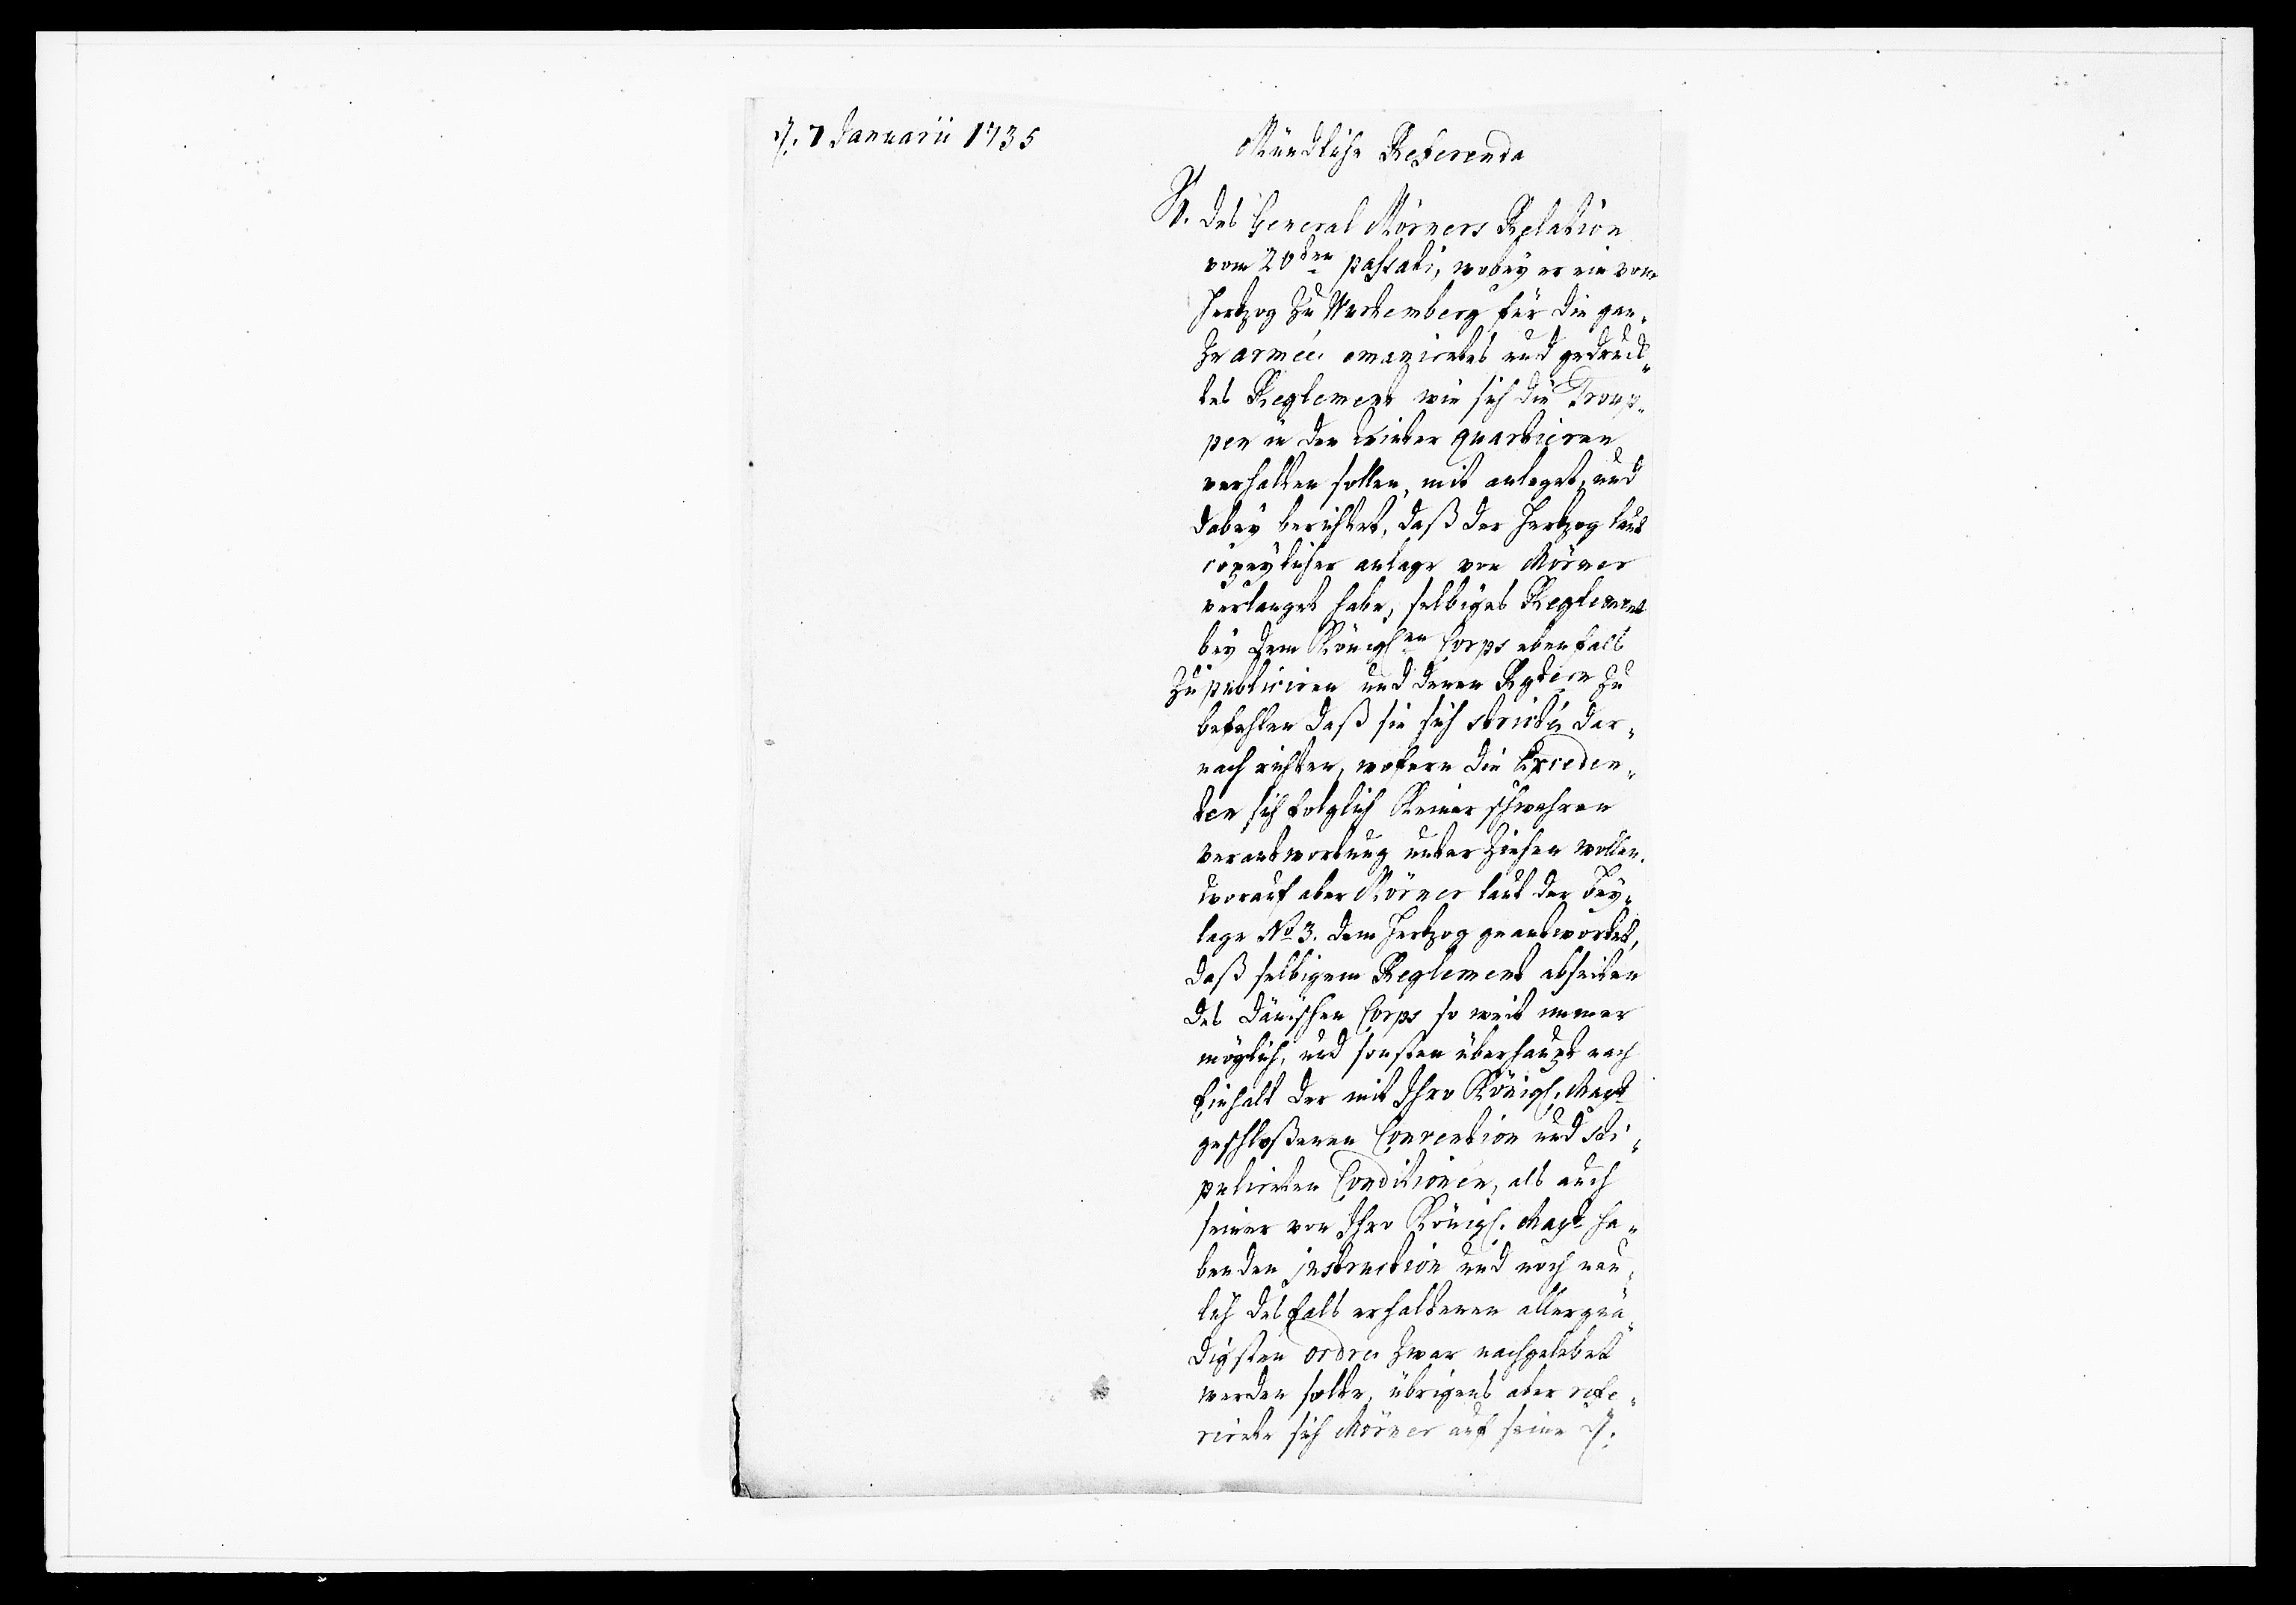 d. 7 Januarii 1735
Mündliche Referenda
Des General Mörners Relation
vom 20den passati, wobey er ein vom
Hertzog zu Wurtemberg für die gan„
ze armée emanirtes und gedruck„
tes Reglement wie sich die Troup„
pen in den Winter quartieren
verhalten sollen, mit anleget, und
dabey berichtet, daß der Hertzog laut
copeylicher anlage von Mörner
verlanget habe, selbiges Reglement
bey dem Königlen Corps ebenfals
zu publiciren und denen Rgtern zu
befehlen daß sie sich stricté dar„
nach richten, wofern die Exceden„
ten sich folglich keiner schwehren
verantwortung unterziehen wollen.
worauf aber Mörner laut der Bey„
lage No 3. dem Hertzog geantwortet,
daß selbigem Reglement abseiten
des dänischen Corps so weit immer
möglich, und sonsten überhaupt nach
Einhalt der mit Ihro Königl. Mayt
geschloßenen Convention und sti„
pulirten Conditionen, als auch
seiner von Ihro Königl. Mayt ha„
benden instruction und noch neu„
lich desfals erhaltenen allergnä„
digsten ordre zwar nachgelebet
werden solte, übrigens aber refe„
rirte sich Mörner auf seine d.